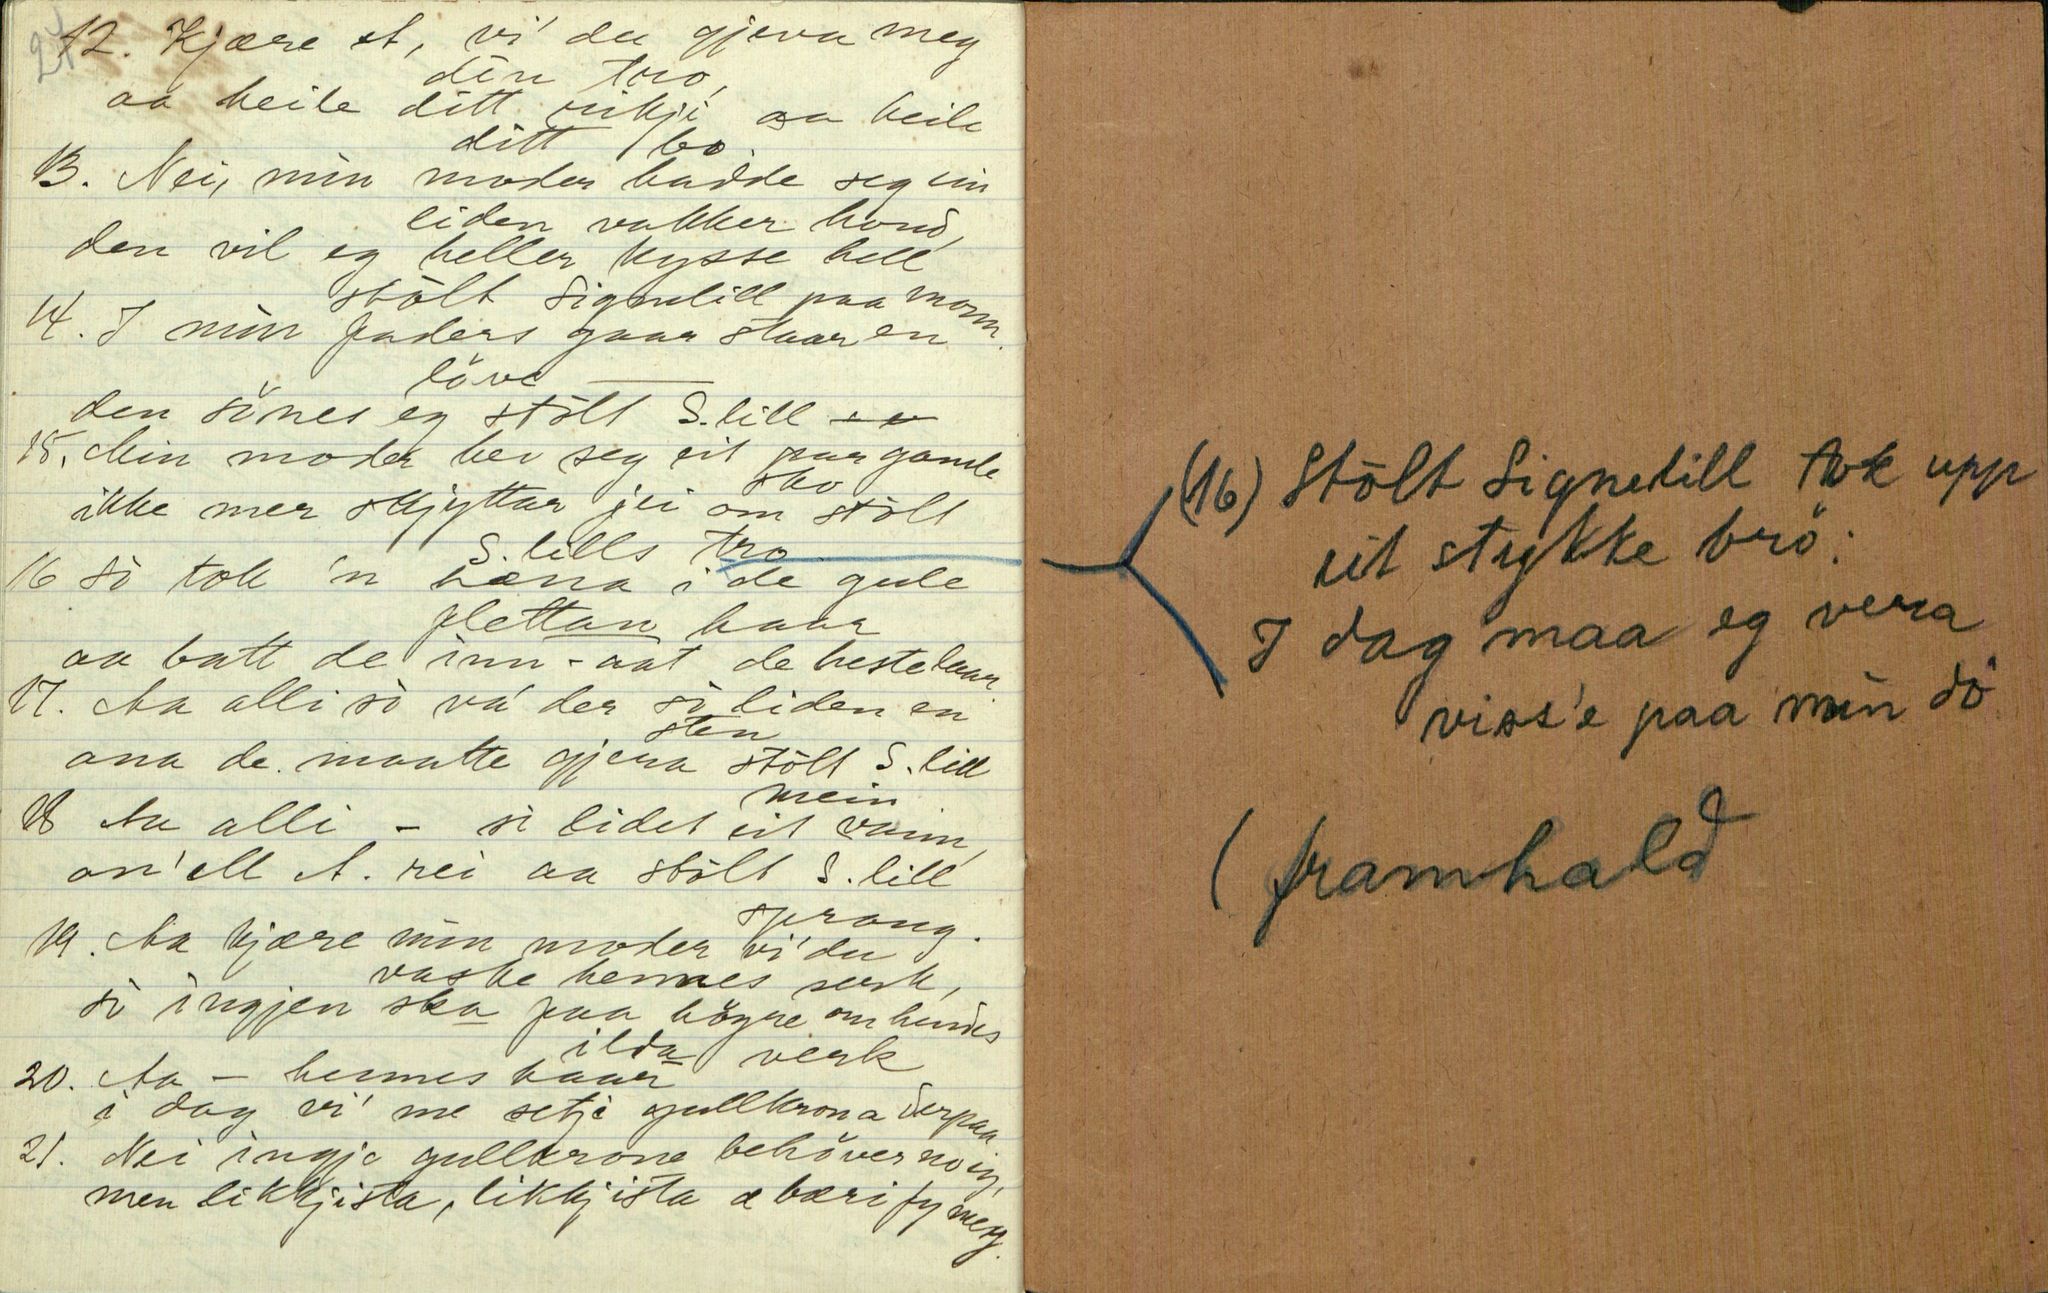 12. Kjære A, vi' du gjeva meg
din tro,
aa heile ditt rikji aa heile
ditt bo.
13. Nei, min moder hadde seg ein
liden vakker hond,
den vil eg heller kysse hell
stolt Signelill paa monn.
14. I min faders gaar staar en
löve
den sönes eg stölt S. lill
15. Min moder hev seg eit par gamle
sko
ikke mer skjyttar jei om stölt
S. lills tro
16 Sò tok 'n hæna i de gule
flettan haar
aa batt de inn-aat de hestelaar
17. Aa alli sò vá der sò liden en
sten
ana de maatte gjera stölt S. lill
mein
18 Aa alli - sò lidet eit vainn,
an'ell A. rei aa stölt S. lill
sprang.
19. Aa kjære min moder vi' du
vaske hennes serk,
sò ingjen ska faa högre om hendes
ilda verk
20. Aa - hennes haar
i dag vi' me setji gullkrona derpaa
21. Nei ingje gullkrone behöver no eg,
men likkjista, likkjista æ bæri fy meg.
(16) Stölt Signelill tok upp
eit stykke brö:
I dag maa eg vera
viss'e paa min dö
(framhald